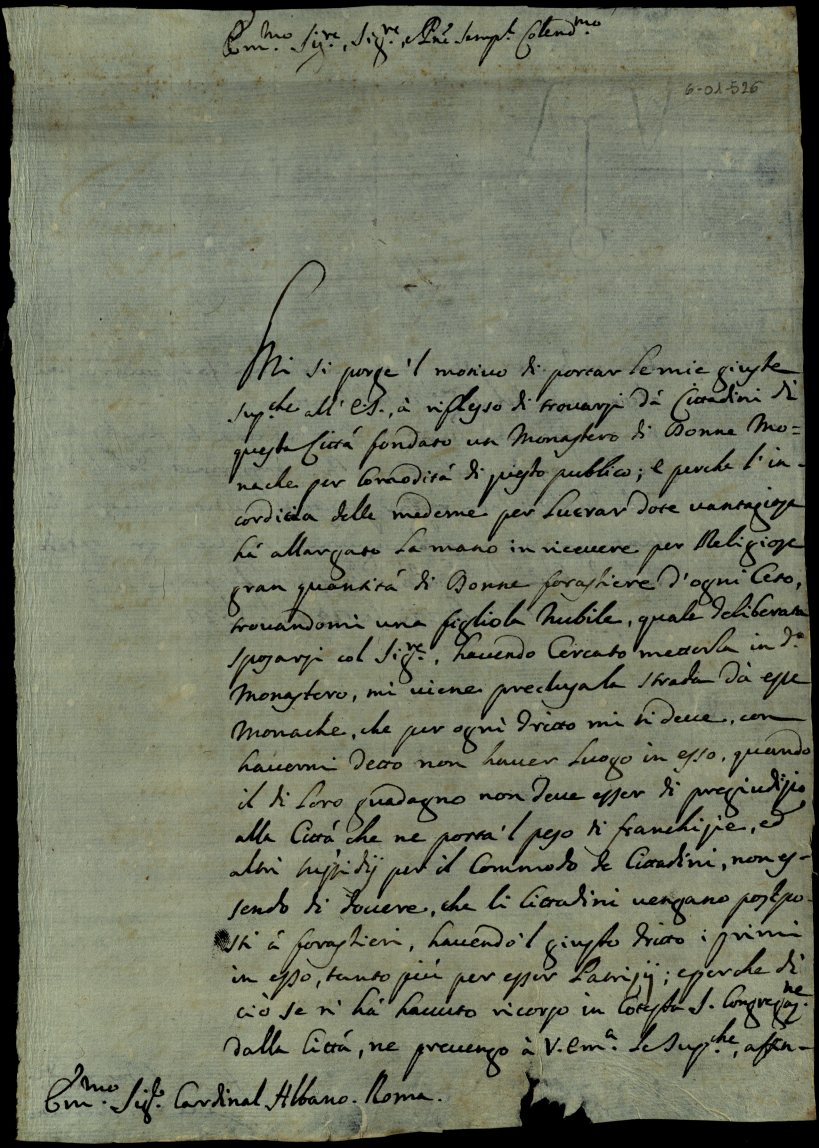 Em.mo Sig.re, Sig.re, e Pne Semp.e Colend.mo
6-01-526
Mi si porge 'l motivo di portar le mie giuste
sup.che all' E.S., à riflesso di trovarsi dà Cittadini di
questa Città fondato un Monastero di Donne Mo=
nache per Comodità di questo publico; e perche l' in-
gordiggia delle medeme per lucrar dote vantagiose
hà allargato la mano in ricevere per Religiose
gran quantità di Donne forastiere d'ogni Ceto,
trovandomi una figliola Nubile, quale deliberata
sposarsi col Sig.re, havendo Cercato metterla in d.o
Monastero, mi viene preclusa la strada dà esse
Monache, che per ogni dritto mi si deve, con
havermi detto non haver luogo in esso, quando
il di loro guadagno non deve esser di pregiudizio
alla Città che ne porta 'l peso di franchizie, ed
altri sussidij per il Commodo de Cittadini, non es-
sendo di dovere, che li Cittadini vengano postpo-
sti à forastieri, havendo 'l giusto dritto i primi
in esso, tanto più per esser Patrizij; e perche di
ciò se n' hà havuto ricorso in Cotesta S. Congregaz.ne
dalla Città, ne prevengo à V. Em.a le Sup.che, affin-
Em.mo Sig.r Cardinal Albano. Roma.